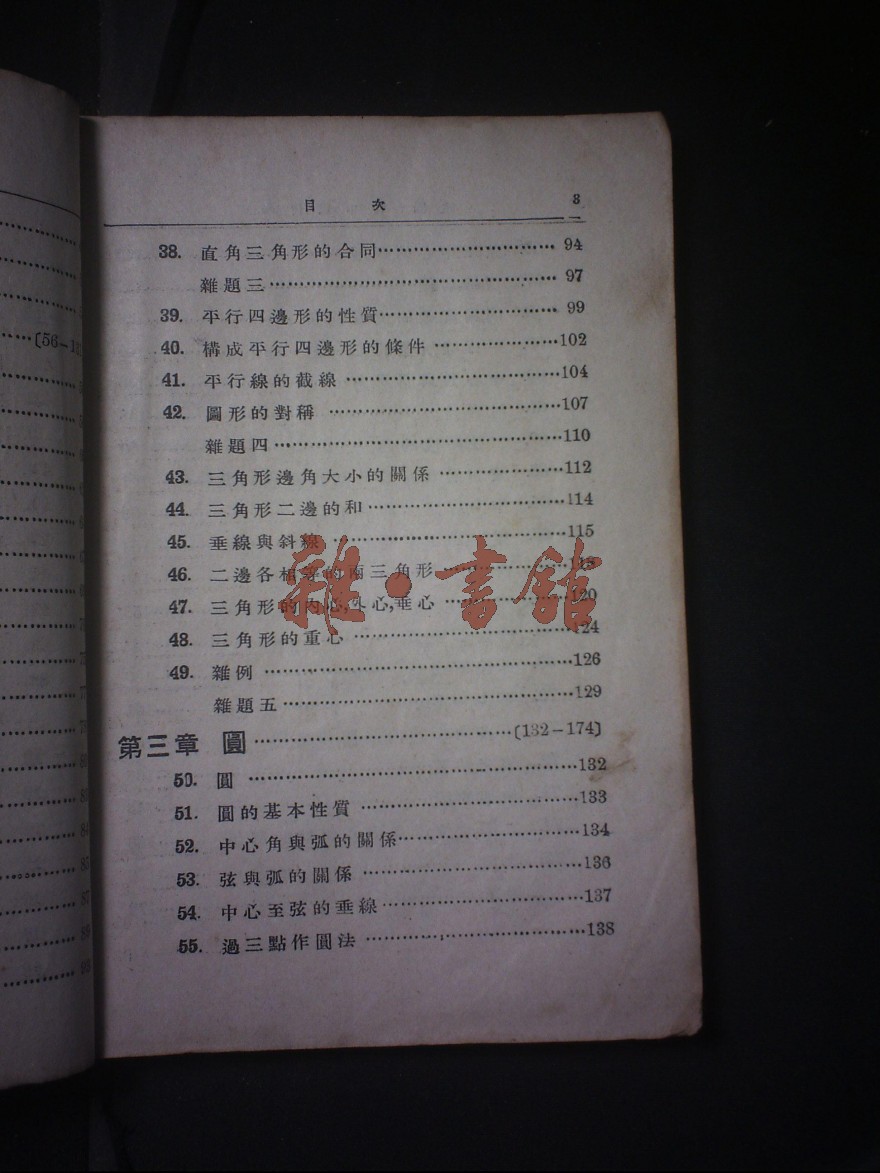 目次 3
38. 直角三角形的合同 94
雜題三 97
39. 平行四邊形的性質 99
40. 構成平行四邊形的條件 102
41. 平行線的截線 104
42. 圖形的對稱 107
雜題四 110
43. 三角形邊角大小的關係 112
44. 三角形二邊的和 114
45. 垂線與斜線 115
46. 二邊各相等的兩三角形
47. 三角形的內心,外心,垂心 120
48. 三角形的重心 124
49. 雜例 126
雜題五 129
第三章 圓 〔132-174〕
50. 圓 132
51. 圓的基本性質 133
52. 中心角與弧的關係 134
53. 弦與弧的關係 136
54. 中心至弦的垂線 137
55. 過三點作圓法 138
雜·書館